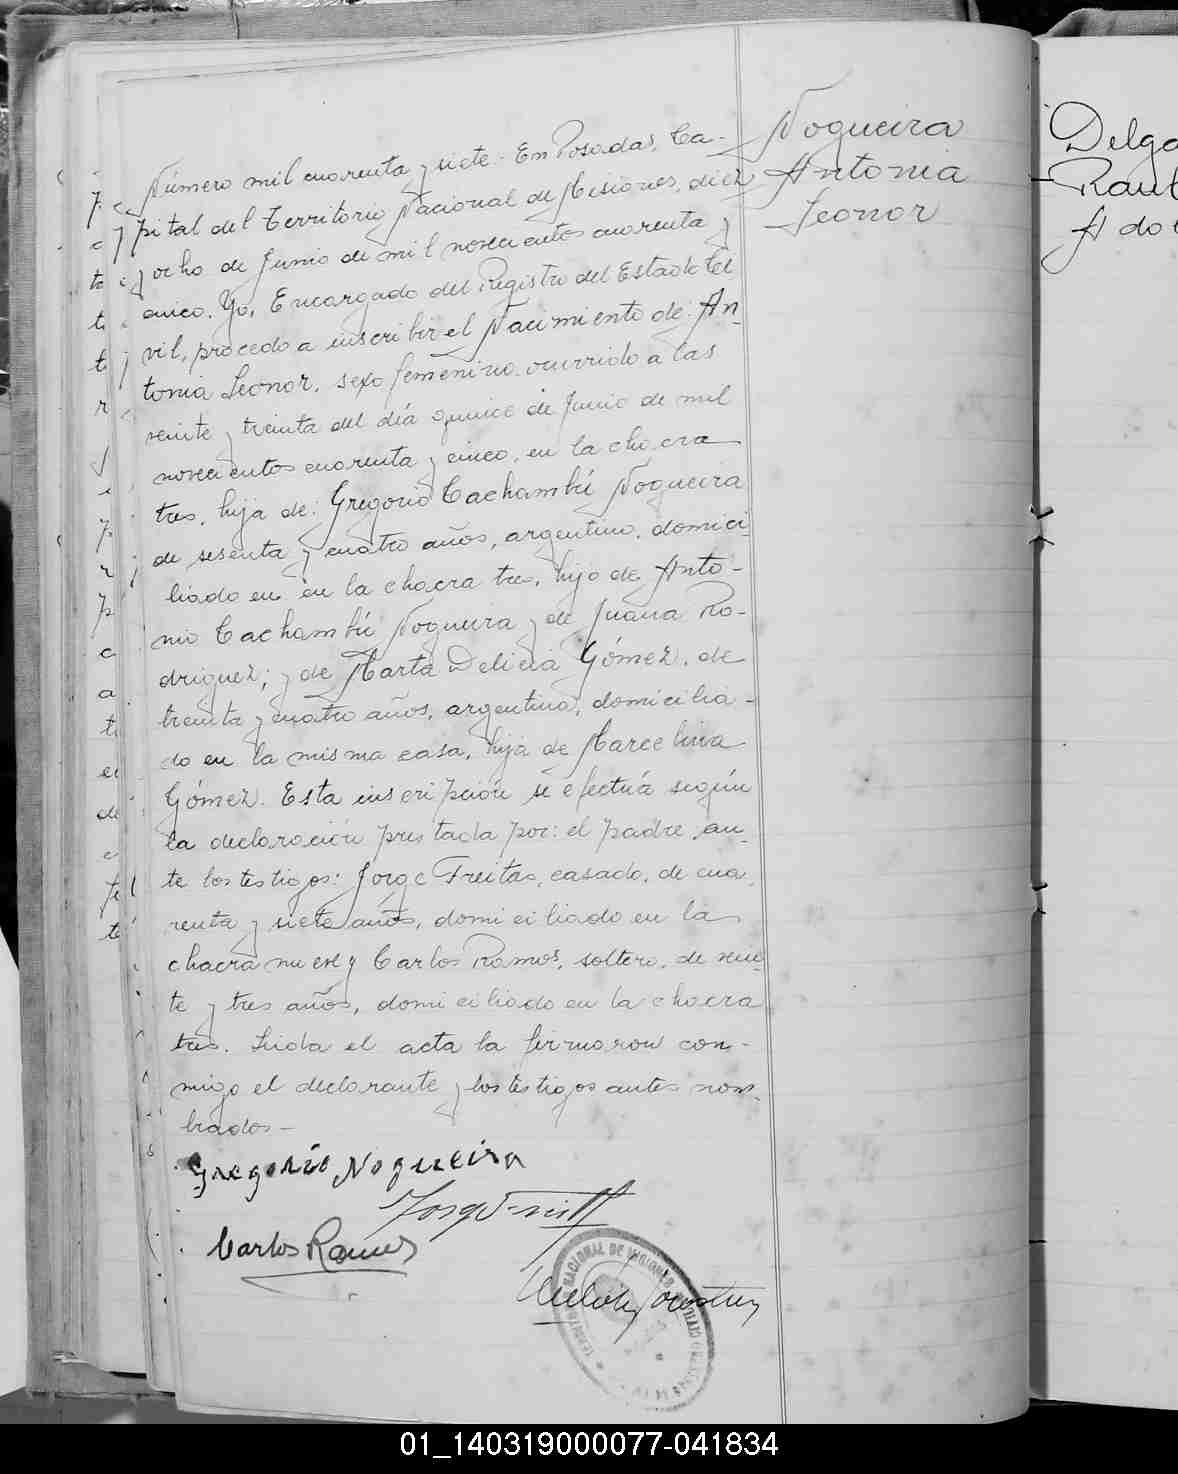 Número mil cuarenta y siete. En Posadas, Ca-
pital del Territorio Nacional de Misiones, diez
y ocho de Junio de mil novecientos cuarenta y
cinco. Yo, Encargado del Registro del Estado Ci-
vil, procedo a inscribir el Nacimiento de: An-
tonia Leonor, sexo femenino, ocurrido a las
veinte y treinta del día quince de Junio de mil
novecientos cuarenta y cinco, en la chacra
tres, hija de: Gregorio Cachambú Nogueira
de sesenta y cuatro años, argentino, domici-
liado en en la chacra tres, hijo de Anto-
nio Cachambú Nogueira y de Juana Ro-
driguez; y de Marta Delicia Gómez, de
treinta y cuatro años, argentina, domicilia-
do en la misma casa, hija de Marcelina
Gómez. Esta inscripción se efectúa según
la declaración prestada por: el padre, an-
te los testigos: Jorge Freitas, casado, de cua-
renta y siete años, domiciliado en la
chacra nueve y Carlos Ramos, soltero, de vein-
te y tres años, domiciliado en la chacra
tres. Leida el acta la firmaron con-
migo el declarante y los testigos antes nom-
brados-
Gregorio Nogueira
Carlos Ramos
NACIONAL DE MISIONES
Nogueira
Antonia
Leonor
Delga
Raul
Ado
01_140319000077-041834